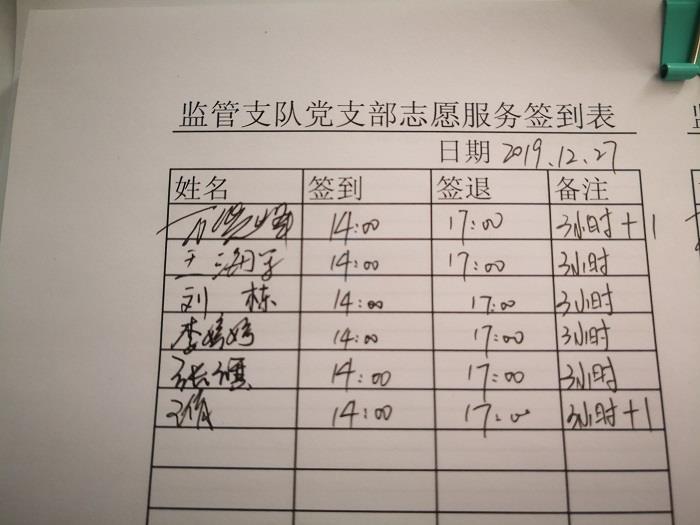 监管支队党支部志愿服务签到表
日期 2019.12.27
姓名 签到 签退 备注
14:00 17:00 3小时+1
王海军 14:00 17:00 3小时
刘栋 14:00 17:00 3小时
李婷婷 14:00 17:00 3小时
张 14:00 17:00 3小时
14:00 17:00 3小时+1